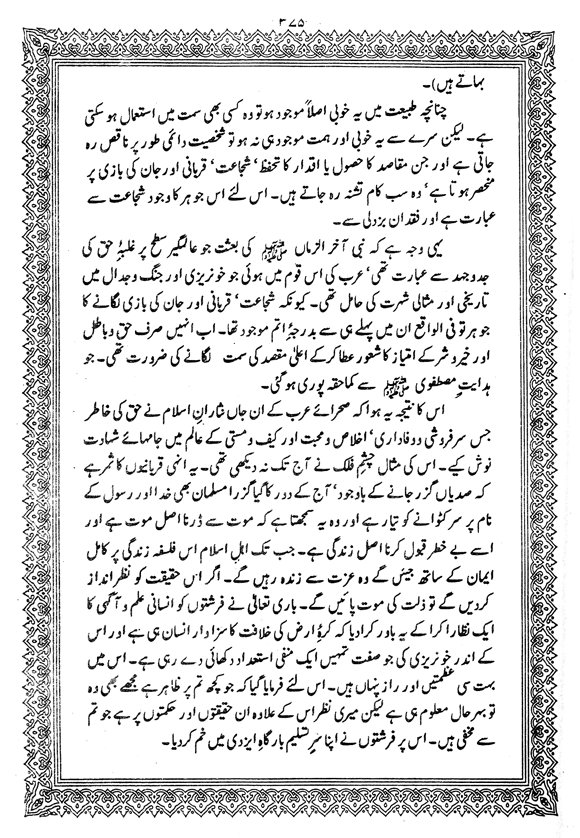 ۳۷۵
بہاتے ہیں)۔
چنانچہ طبیعت میں یہ خوبی اصلاً موجود ہو تو وہ کسی بھی سمت میں استعمال ہو سکتی
ہے۔ لیکن سرے سے یہ خوبی اور ہمت موجود ہی نہ ہو تو شخصیت دائمی طور پر ناقص رہ
جاتی ہے اور جن مقاصد کا حصول یا اقدار کا تحفظ' شجاعت' قربانی اور جان کی بازی پر
منحصر ہوتا ہے' وہ سب کام تشنہ رہ جاتے ہیں۔ اس لئے اس جوہر کا وجود شجاعت سے
عبارت ہے اور فقدان بزدلی سے۔
یہی وجہ ہے کہ نبی آخر الزماں ﷺ کی بعثت جو عالمگیر سطح پر غلبۂ حق کی
جدوجہد سے عبارت تھی' عرب کی اس قوم میں ہوئی جو خونریزی اور جنگ و جدال میں
تاریخی اور مثالی شہرت کی حامل تھی۔ کیونکہ شجاعت' قربانی اور جان کی بازی لگانے کا
جوہر تو فی الواقع ان میں پہلے ہی سے بدرجۂ اتم موجود تھا۔ اب انہیں صرف حق و باطل
اور خیر و شر کے امتیاز کا شعور عطا کر کے اعلیٰ مقصد کی سمت لگانے کی ضرورت تھی۔ جو
ہدایتِ مصطفوی ﷺ سے کماحقہ پوری ہو گئی۔
اس کا نتیجہ یہ ہوا کہ صحرائے عرب کے ان جاں نثارانِ اسلام نے حق کی خاطر
جس سرفروشی و وفاداری' اخلاص و محبت اور کیف و مستی کے عالم میں جامہائے شہادت
نوش کیے۔ اس کی مثال چشمِ فلک نے آج تک نہ دیکھی تھی۔ یہ انہی قربانیوں کا ثمر ہے
کہ صدیاں گزر جانے کے باوجود' آج کے دور کا گیا گزرا مسلمان بھی خدا اور رسول کے
نام پر سر کٹوانے کو تیار ہے اور وہ یہ سمجھتا ہے کہ موت سے ڈرنا اصل موت ہے اور
اسے بے خطر قبول کرنا اصل زندگی ہے۔ جب تک اہلِ اسلام اس فلسفہ زندگی پر کامل
ایمان کے ساتھ جیئں گے وہ عزت سے زندہ رہیں گے۔ اگر اس حقیقت کو نظر انداز
کردیں گے تو ذلت کی موت پائیں گے۔ باری تعالیٰ نے فرشتوں کو انسانی علم و آگہی کا
ایک نظارا کرا کے یہ باور کرا دیا کہ کرۂ ارض کی خلافت کا سزادار انسان ہی ہے اور اس
کے اندر خونریزی کی جو صفت تمہیں ایک منفی استعداد دکھائی دے رہی ہے۔ اس میں
بہت سی عظمتیں اور راز پنہاں ہیں۔ اس لئے فرمایا گیا کہ جو کچھ تم پر ظاہر ہے مجھے بھی وہ
تو بہر حال معلوم ہی ہے لیکن میری نظر اس کے علاوہ ان حقیقتوں اور حکمتوں پر ہے جو تم
سے مخفی ہیں۔ اس پر فرشتوں نے اپنا سرِ تسلیم بارگاہِ ایزدی میں خم کر دیا۔